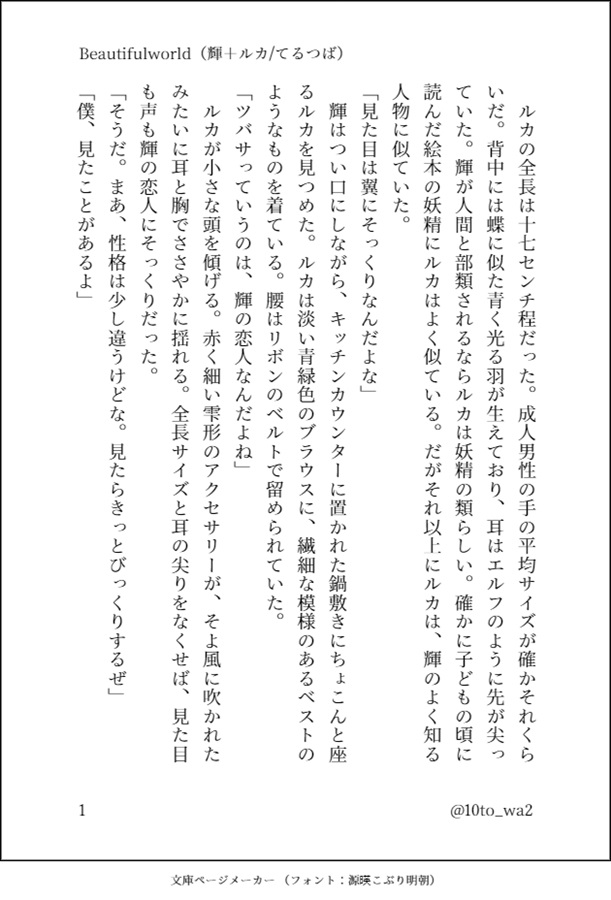 Beautifulworld（輝＋ルカ/てるつば）
　ルカの全長は十七センチ程だった。成人男性の手の平均サイズが確かそれくら
いだ。背中には蝶に似た青く光る羽が生えており、耳はエルフのように先が尖っ
ていた。輝が人間と部類されるならルカは妖精の類らしい。確かに子どもの頃に
読んだ絵本の妖精にルカはよく似ている。だがそれ以上にルカは、輝のよく知る
人物に似ていた。
「見た目は翼にそっくりなんだよな」
　輝はつい口にしながら、キッチンカウンターに置かれた鍋敷きにちょこんと座
るルカを見つめた。ルカは淡い青緑色のブラウスに、繊細な模様のあるベストの
ようなものを着ている。腰はリボンのベルトで留められていた。
「ツバサっていうのは、輝の恋人なんだよね」
　ルカが小さな頭を傾げる。赤く細い雫形のアクセサリーが、そよ風に吹かれた
みたいに耳と胸でささやかに揺れる。全長サイズと耳の尖りをなくせば、見た目
も声も輝の恋人にそっくりだった。
「そうだ。まあ、性格は少し違うけどな。見たらきっとびっくりするぜ」
「僕、見たことがあるよ」
1
@10to_wa2
文庫ページメーカー（フォント：源暎こぶり明朝）